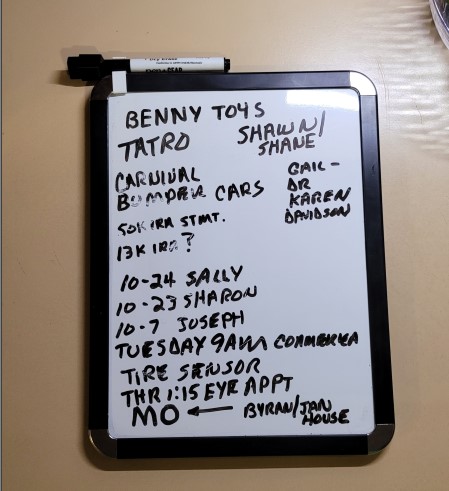 Dry Erase
BENNY TOYS
TATRO
SHAWN/
SHANE
CARNIVAL
BUMPER CARS
GAIL -
DR
KAREN
DAVIDSON
50K IRA STMT.
13K IRA?
10-24 SALLY
10-23 SHARON
10-7 JOSEPH
TUESDAY 9AM
TIRE SENSOR
THR 1:15 EYE APPT
MO ← BYRAN/JAN
HOUSE